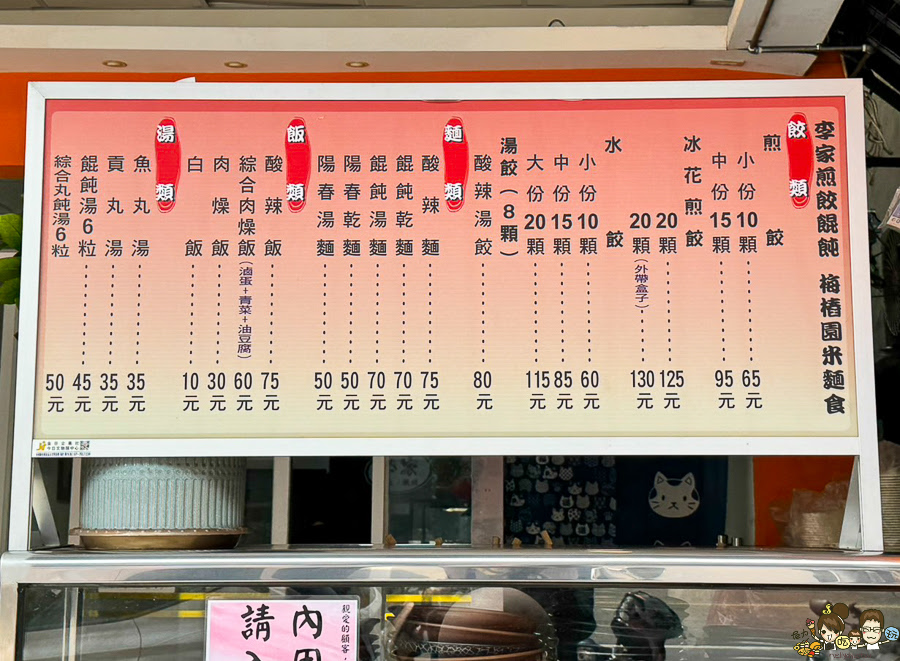 李家煎餃餛飩 梅樁園米麵食
餃類
煎餃
小份10顆 65元
中份15顆 95元
冰花煎餃
20顆 125元
20顆(外帶盒子) 130元
水餃
小份10顆 60元
中份15顆 85元
大份20顆 115元
湯餃(8顆)
酸辣湯餃 80元
麵類
酸辣麵 75元
餛飩乾麵 70元
餛飩湯麵 70元
陽春乾麵 50元
陽春湯麵 50元
飯類
酸辣飯 75元
綜合肉燥飯(滷蛋+青菜+油豆腐) 60元
肉燥飯 30元
白飯 10元
湯類
魚丸湯 35元
貢丸湯 35元
餛飩湯6粒 45元
綜合丸飩湯6粒 50元
親愛的顧客,
內用
請入